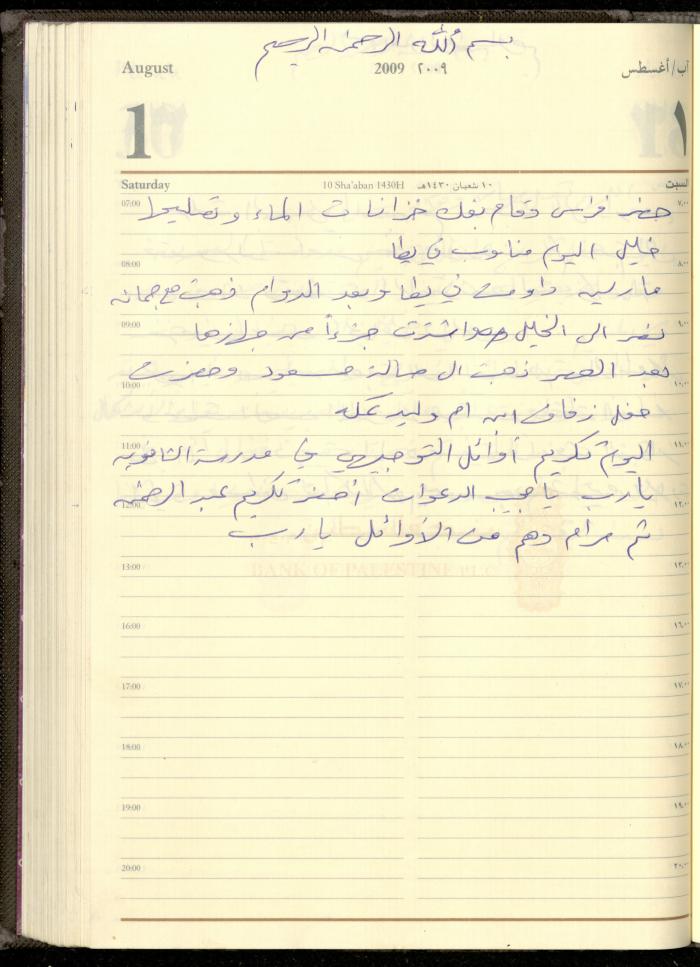 بسم الله الرحمن الرحيم
August 2009 ٢٠٠٩ آب/أغسطس
1 ١
Saturday 10 Sha'aban 1430H ١٠ شعبان ١٤٣٠هـ السبت
07:00 حضر فراس وقام بفك خزانات الماء وتصليحها ٧.٠٠
خليل اليوم مناوب في يطا
08:00 ٨.٠٠
مارسيه داومت في يطا وبعد الدوام ذهبت مع جمانه
09:00 نصر الى الخليل واشترت جزءاً من جهازها ٩.٠٠
بعد العصر ذهبت الى صالة مسعود وحضرت
10:00 ١٠.٠٠
حفل زفاف ابن ام وليد
11:00 اليوم تكريم أوائل التوجيهي في مدرسة الثانوية ١١.٠٠
يارب يا مجيب الدعوات أحضر تكريم عبد الرحمن
12:00 ١٢.٠٠
ثم مرام وهم من الأوائل يا رب
13:00 ١٣.٠٠
BANK OF PALESTINE PLC
16:00 ١٦.٠٠
17:00 ١٧.٠٠
18:00 ١٨.٠٠
19:00 ١٩.٠٠
20:00 ٢٠.٠٠